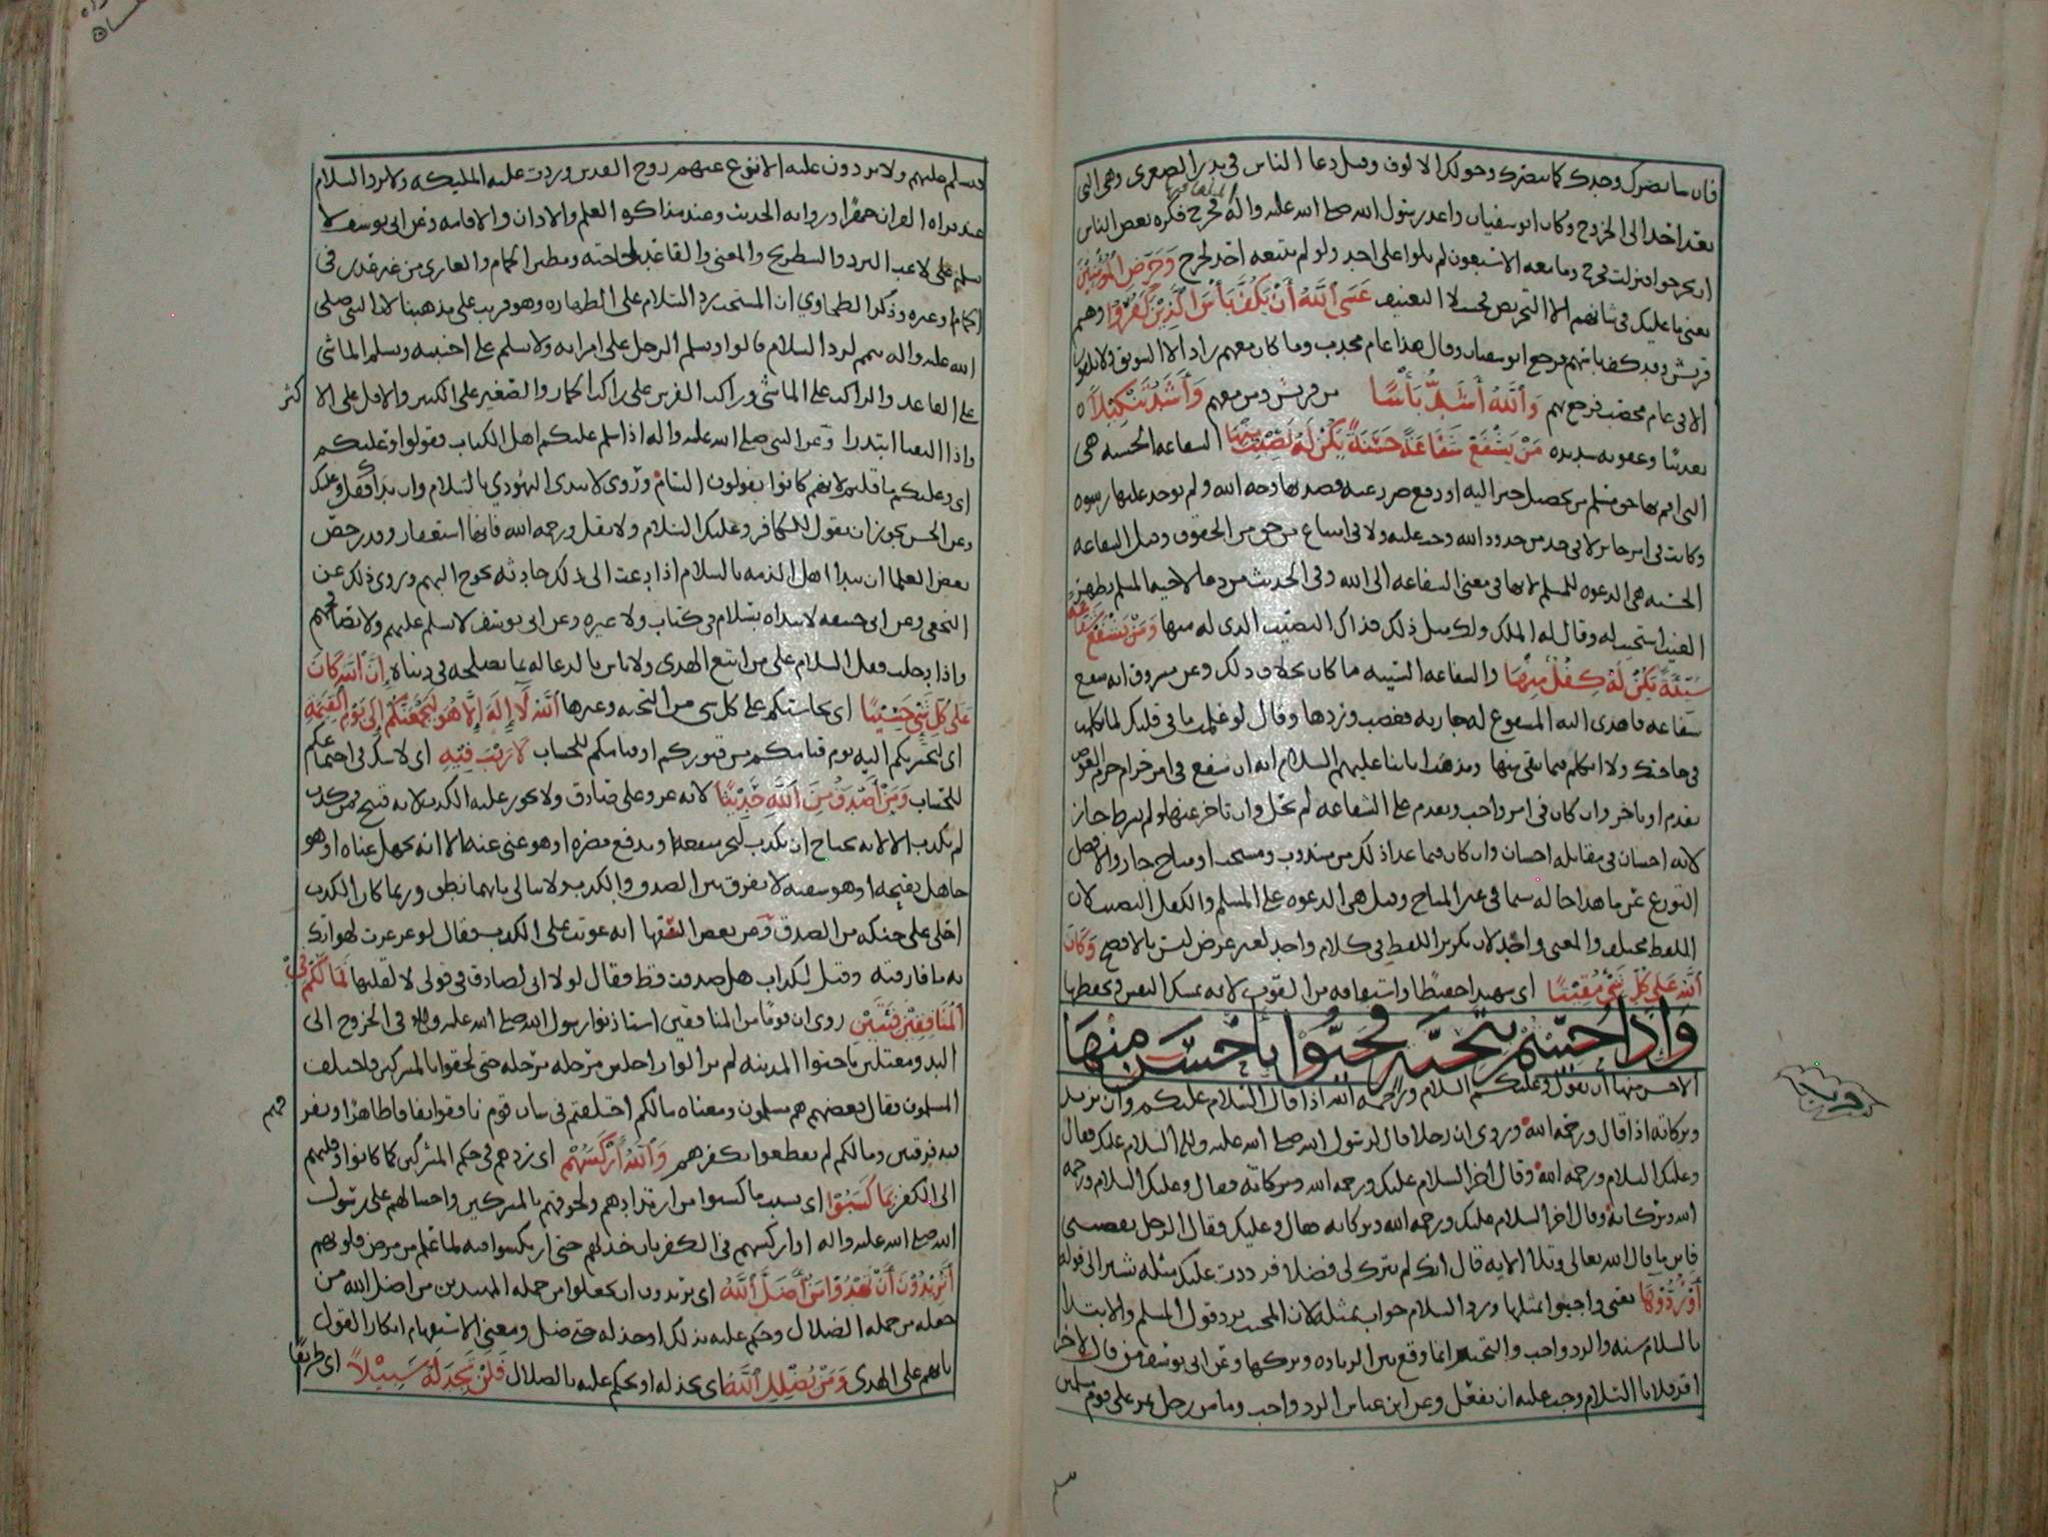 فان شا نصرك وحدك كما ينصرك وحولك الالوف وقيل دعا الناس في بدر الصغرى وهي التي
بعد احد الى الخروج وكان ابو سفيان واعد رسول الله صلى الله عليه واله فخرج فكره بعض الناس
ان يخرجوا فنزلت فخرج وما معه الا سبعون لم يلووا على احد ولو لم يتبعه احد لخرج وَحَرِّضِ الْمُؤْمِنِينَ
يعني ما عليك في شانهم الا التحريض فحسب لا التعنيف عَسَى اللَّهُ أَنْ يَكُفَّ بَأْسَ الَّذِينَ كَفَرُوا وهم
قريش وقد كف باسهم فرجع ابو سفيان وقال هذا عام مجدب وما كان معهم زاد الا السويق ولا يلقون
الا في عام مخصب فرجع بهم وَاللَّهُ أَشَدُّ بَأْسًا من قريش ومن معهم وَأَشَدُّ تَنْكِيلًا
تعذيبا وعقوبه شديده مَنْ يَشْفَعْ شَفَاعَةً حَسَنَةً يَكُنْ لَهُ نَصِيبٌ مِنْهَا الشفاعه الحسنه هي
التي اقيم بها حق مسلم من تحصيل خير اليه او دفع ضرر عنه وقصد بها وجه الله ولم يوخذ عليها رشوه
وكانت في امر جائز لا في حد من حدود الله وجب عليه ولا في امتناع من حق من الحقوق وقيل الشفاعه
الحسنه هي الدعوه للمسلم لانها في معنى الشفاعه الى الله وفي الحديث من دعا لاخيه المسلم بظهر
الغيب استجيب له وقال له الملك ولك مثل ذلك فذاك النصيب الذي له منها وَمَنْ يَشْفَعْ شَفَاعَةً
سَيِّئَةً يَكُنْ لَهُ كِفْلٌ مِنْهَا والشفاعه السيئه ما كان بخلاف ذلك وعن مسروق انه شفع
شفاعه فاهدى اليه المشفوع له جاريه فغضب وردها وقال لو علمت ما في قلبك لما تكلمت
في حاجتك ولا اتكلم فيما بقي منها ومذهب ابائنا عليهم السلام انه ان شفع في امر حرام حرم العوض
تقدم او تاخر وان كان في امر واجب وتقدم على الشفاعه لم يحل وان تاخر عنها ولم يشرط جاز
لانه احسان في مقابله احسان وان كان فيما عدا ذلك من مندوب ومستحب او مباح جاز والافضل
التورع عن ما هذا حاله سيما في غير المباح وقيل هي الدعوه على المسلم والكفل النصيب لان
اللفظ مختلف والمعنى واحد لان تكرير اللفظ في كلام واحد لغير عرض ليس بالافصح وَكَانَ
اللَّهُ عَلَى كُلِّ شَيْءٍ مُقِيتًا اي شهيدا حفيظا واشتقاقه من القوت لانه يمسك النفس ويحفظها
وَإِذَا حُيِّيتُمْ بِتَحِيَّةٍ فَحَيُّوا بِأَحْسَنَ مِنْهَا
الاحسن منها ان تقول وعليكم السلام ورحمه الله اذا قال السلام عليكم وان تزيد
وبركاته اذا قال ورحمه الله وروي ان رجلا قال لرسول الله صلى الله عليه واله السلام عليك فقال
وعليك السلام ورحمه الله وقال اخر السلام عليك ورحمه الله وبركاته فقال وعليك السلام ورحمه
الله وبركاته وقال اخر السلام عليك ورحمه الله وبركاته فقال وعليك وقال الرجل نقصتني
فاين ما قال الله تعالى وتلا الايه قال انك لم تترك لي فضلا فرددت عليك مثله تشير الى قوله
أَوْ رُدُّوهَا يعني واجيبوا بمثلها ورد السلام جوابه بمثله لان المجيب يرد قول المسلم والابتدا
بالسلام سنه والرد واجب والتخيير انما وقع بين الزياده وتركها وعن ابي يوسف من قال لاخر
اقر فلانا السلام وجب عليه ان يفعل وعن ابن عباس الرد واجب وما من رجل يمر على قوم مسلمين
فيسلم عليهم ولا يردون عليه الا نزع عنهم روح القدس وردت عليه المليكه ولا يرد السلام
عند قراه القران جهرا وروايه الحديث وعند مذاكره العلم والاذان والاقامه وعن ابي يوسف لا
يسلم على لاعب النرد والشطرنج والمغني والقاعد لحاجته ومطير الحمام والعاري من غير عذر في
حمام او غيره وذكر الطحاوي ان المستحب رد السلام على الطهاره وهو قريب على مذهبنا لان النبي صلى
الله عليه واله تيمم لرد السلام قالوا ويسلم الرجل على امراته ولا يسلم على اجنبيه ويسلم الماشي
على القاعد والراكب على الماشي وراكب الفرس على راكب الحمار والصغير على الكبير والاقل على الاكثر
واذا التقيا ابتدرا وعن النبي صلى الله عليه واله اذا سلم عليكم اهل الكتاب فقولوا وعليكم
اي وعليكم ما قلتم لانهم كانوا يقولون السام وروي لا تبتدئ اليهودي بالسلام وان بداك فقل وعليك
وعن الحسن يجوز ان تقول للكافر وعليك السلام ولا تقل ورحمه الله فانها استغفار وقد رخص
بعض العلما ان يبدا اهل الذمه بالسلام اذا دعت الى ذلك حادثه تحوج اليهم وروي ذلك عن
النخعي وعن ابي حنيفه لا تبداه بسلام في كتاب ولا غيره وعن ابي يوسف لا تسلم عليهم ولا تصافحهم
واذا دخلت فقل السلام على من اتبع الهدى ولا باس بالدعا له بما يصلحه في دنياه إِنَّ اللَّهَ كَانَ
عَلَى كُلِّ شَيْءٍ حَسِيبًا اي يحاسبكم على كل شي من التحيه وغيرها اللَّهُ لَا إِلَهَ إِلَّا هُوَ لَيَجْمَعَنَّكُمْ إِلَى يَوْمِ الْقِيَمَةِ
اي ليحشرنكم اليه يوم قيامكم من قبوركم او قيامكم للحساب لَا رَيْبَ فِيهِ اي لا شك في اجتماعكم
للحساب وَمَنْ أَصْدَقُ مِنَ اللَّهِ حَدِيثًا لانه عز وعلى صادق ولا يجوز عليه الكذب لانه قبيح فمن كذب
لم يكذب الا لانه محتاج ان يكذب ليجر منفعه او يدفع مضره او هو غني عنه الا انه يجهل غناه او هو
جاهل بقبحه او هو سفيه لا يفرق بين الصدق والكذب ولا يبالي بايهما نطق وربما كان الكذب
احلى على حنكه من الصدق وعن بعض السفها انه عوتب على الكذب فقال لو غرغرت لهواتك
به ما فارقته وقيل لكذاب هل صدقت قط فقال لولا اني لصادق في قولي لا لقلتها فَمَا لَكُمْ فِي
الْمُنَافِقِينَ فِئَتَيْنِ روي ان قوما من المنافقين استاذنوا رسول الله صلى الله عليه واله في الخروج الى
البدو معتلين باجتوا المدينه لم يزالوا راحلين مرحله مرحله حتى لحقوا بالمشركين فاختلف
المسلمون فقال بعضهم هم مسلمون ومعناه ما لكم اختلفتم في شان قوم نافقوا نفاقا ظاهرا وتفرقتم
فيه فرقتين وما لكم لم تقطعوا بكفرهم وَاللَّهُ أَرْكَسَهُمْ اي ردهم في حكم المشركين كما كانوا وقلبهم
الى الكفر بِمَا كَسَبُوا اي بسبب ما كسبوا من ارتدادهم ولحوقهم بالمشركين واحتيالهم على رسول
الله صلى الله عليه واله او اركسهم في الكفر بان خذلهم حتى اركسوا فيه لما علم من مرض قلوبهم
أَتُرِيدُونَ أَنْ تَهْدُوا مَنْ أَضَلَّ اللَّهُ اي تريدون ان تجعلوا من جمله المهتدين من اضل الله من
جعله من جمله الضلال وحكم عليه بذلك او خذله حتى ضل ومعنى الاستفهام انكار القول
بانهم على الهدى وَمَنْ يُضْلِلِ اللَّهُ اي يخذله او يحكم عليه بالضلال فَلَنْ تَجِدَ لَهُ سَبِيلًا اي طريقا